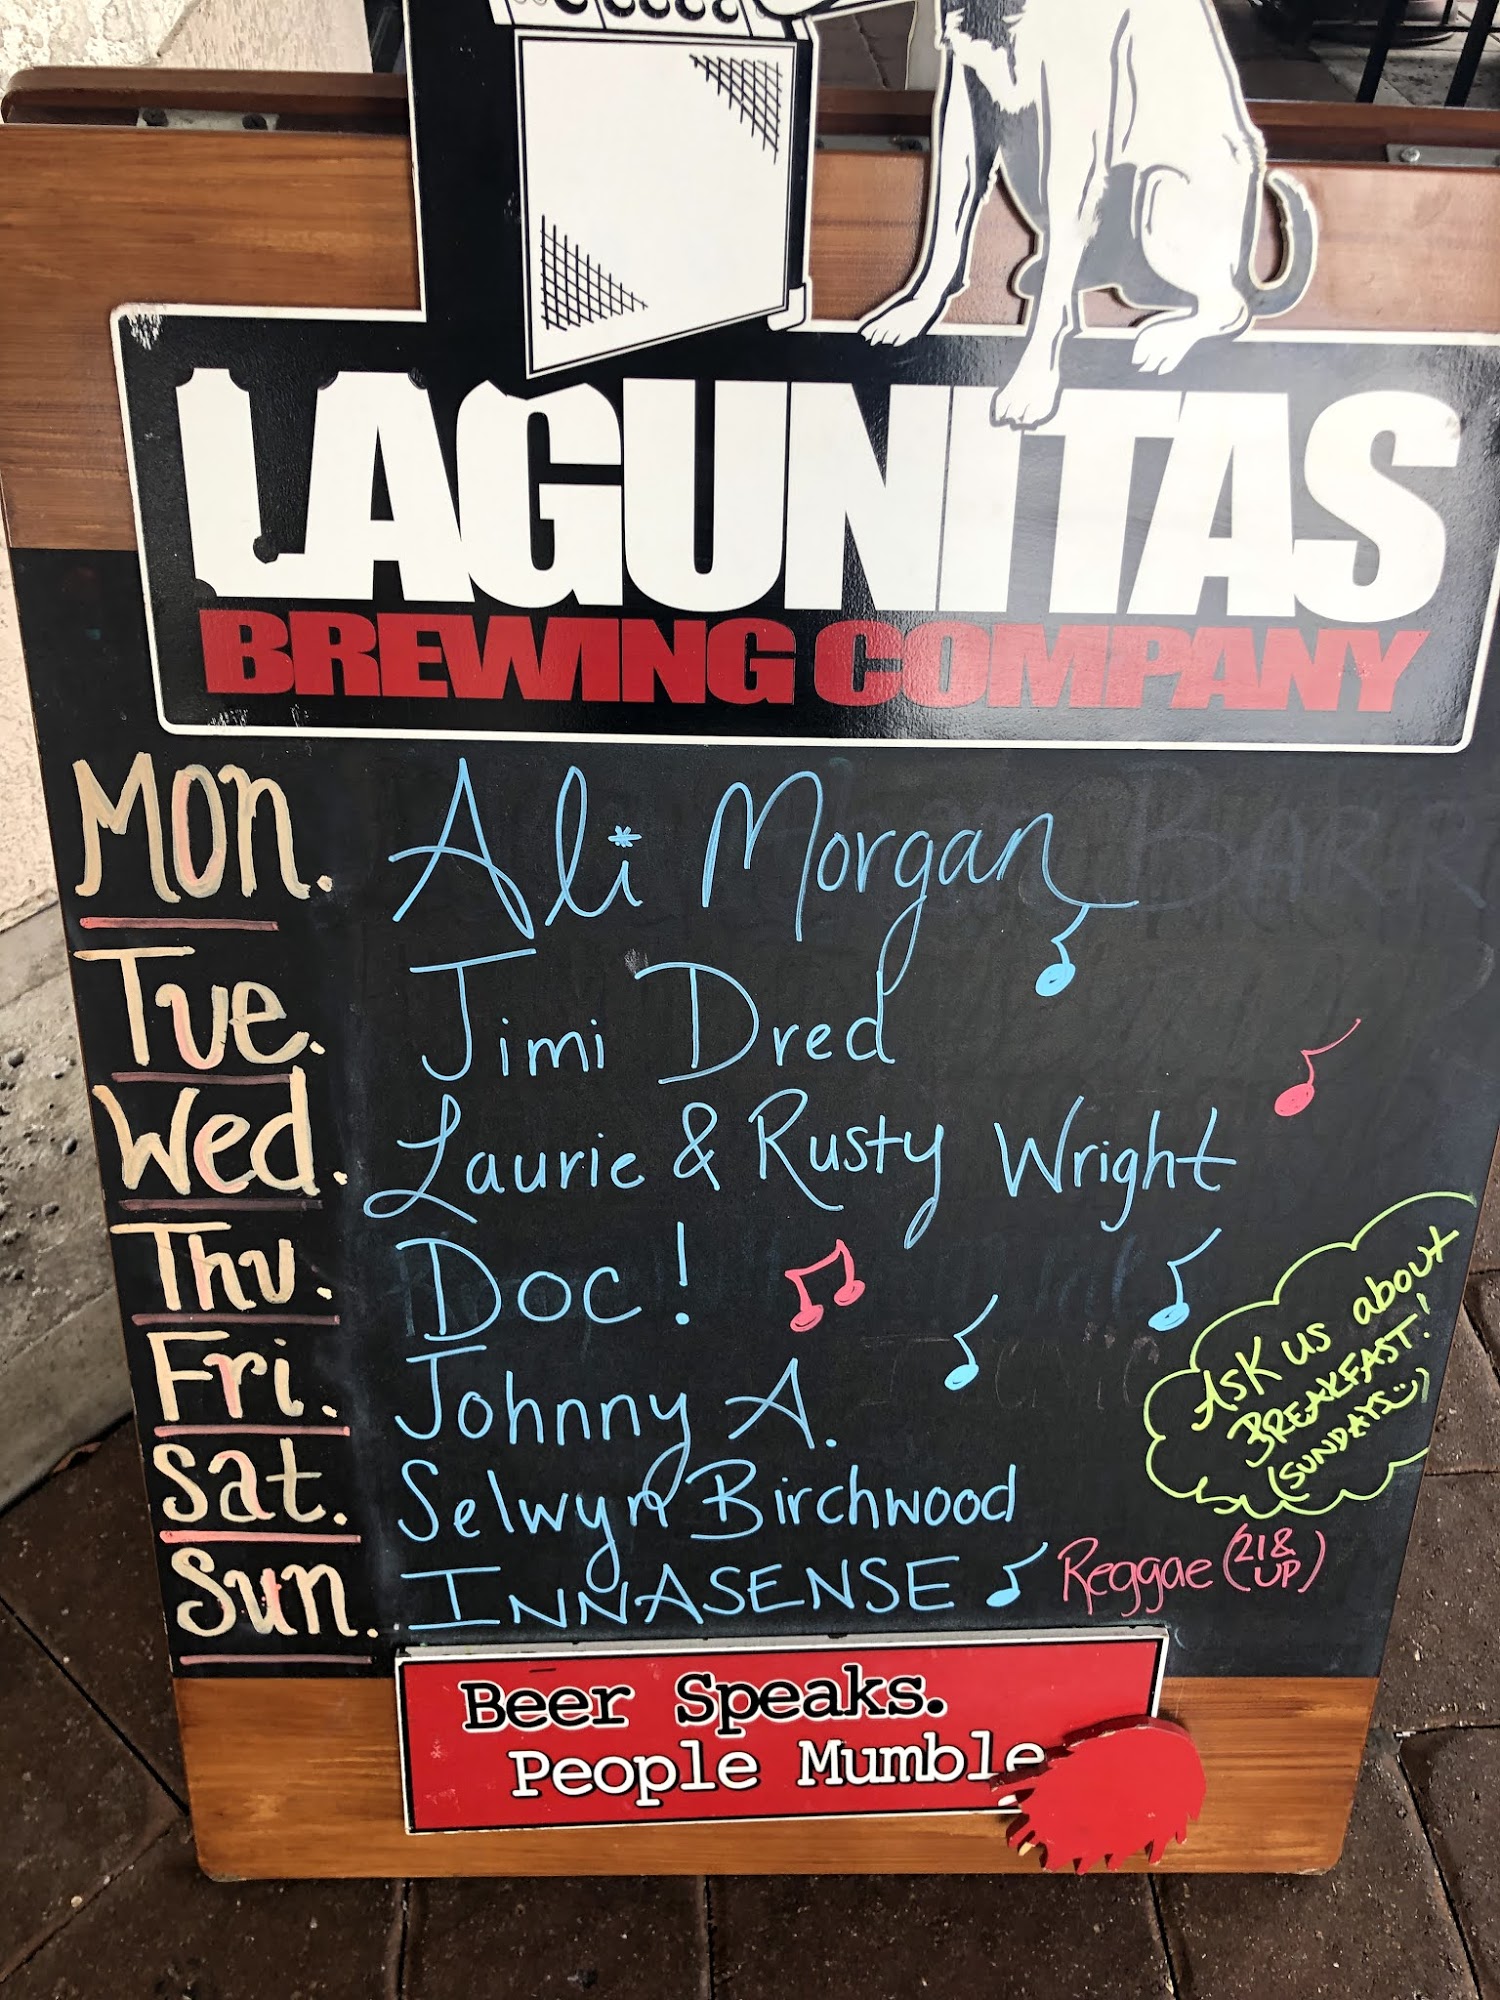 LAGUNITAS
BREWING COMPANY
Mon. Ali Morgan
Tue. Jimi Dred
Wed. Laurie & Rusty Wright
Thu. Doc!
Fri. Johnny A.
Sat. Selwyn Birchwood
Sun. INNASENSE Reggae (21& UP)
Ask us about
BREAKFAST!
(SUNDAYS)
Beer Speaks.
People Mumble